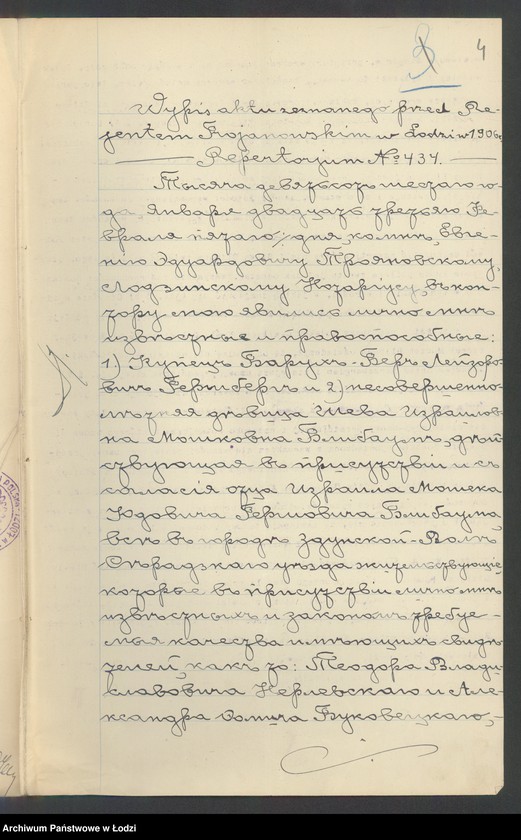 3
4
Wypis aktu zeznanego przed Re-
jentem Trojanowskim w Łodzi w 1906 r.
Repertorjum № 434.
Тысяча девятьсотъ шестого го-
да, Января двадцать третьяго /Фе-
враля пятаго/ дня, ко мнѣ, Евге-
нію Эдуардовичу Трояновскому,
Лодзинскому Нотаріусу, въ кон-
тору мою явились лично мнѣ
извѣстные и правоспособные:
1) Купецъ Барухъ-Беръ Лейзеро-
вичъ Гершбергъ и 2) несовершенно-
лѣтняя дѣвица Шева Израилов-
на Мошковна Блибаумъ, дѣй-
ствующая въ присутствіи и съ
согласія отца Израила Мошека
Юдовича Гершовича Блибаума,
всѣ въ городѣ Здунской-Волѣ
Сѣрадзскаго уѣзда жительствующіе,
которые въ присутствіи лично мнѣ
извѣстныхъ и закономъ требуе-
мыя качества имѣющихъ свидѣ-
телей, какъ то: Теодора Влади-
славовича и Але-
ксандра Буковецкаго,-
Archiwum Państwowe w Łodzi